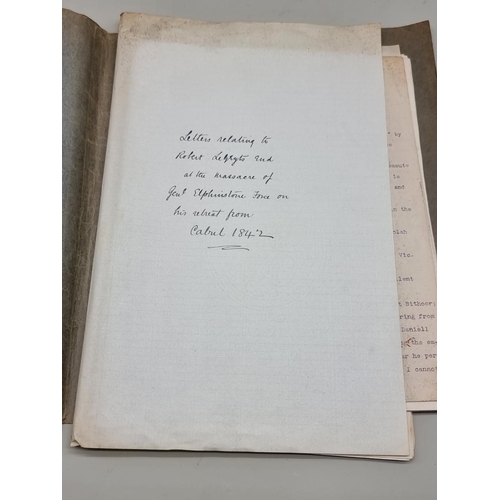 Letters relating to
Robert end
at the massacre of
Genl Elphinstone Force on
his retreat from
Cabul 1842
" by
is
end
the
Vic-
Bithner;
ring from
the en-
he per
I cannot